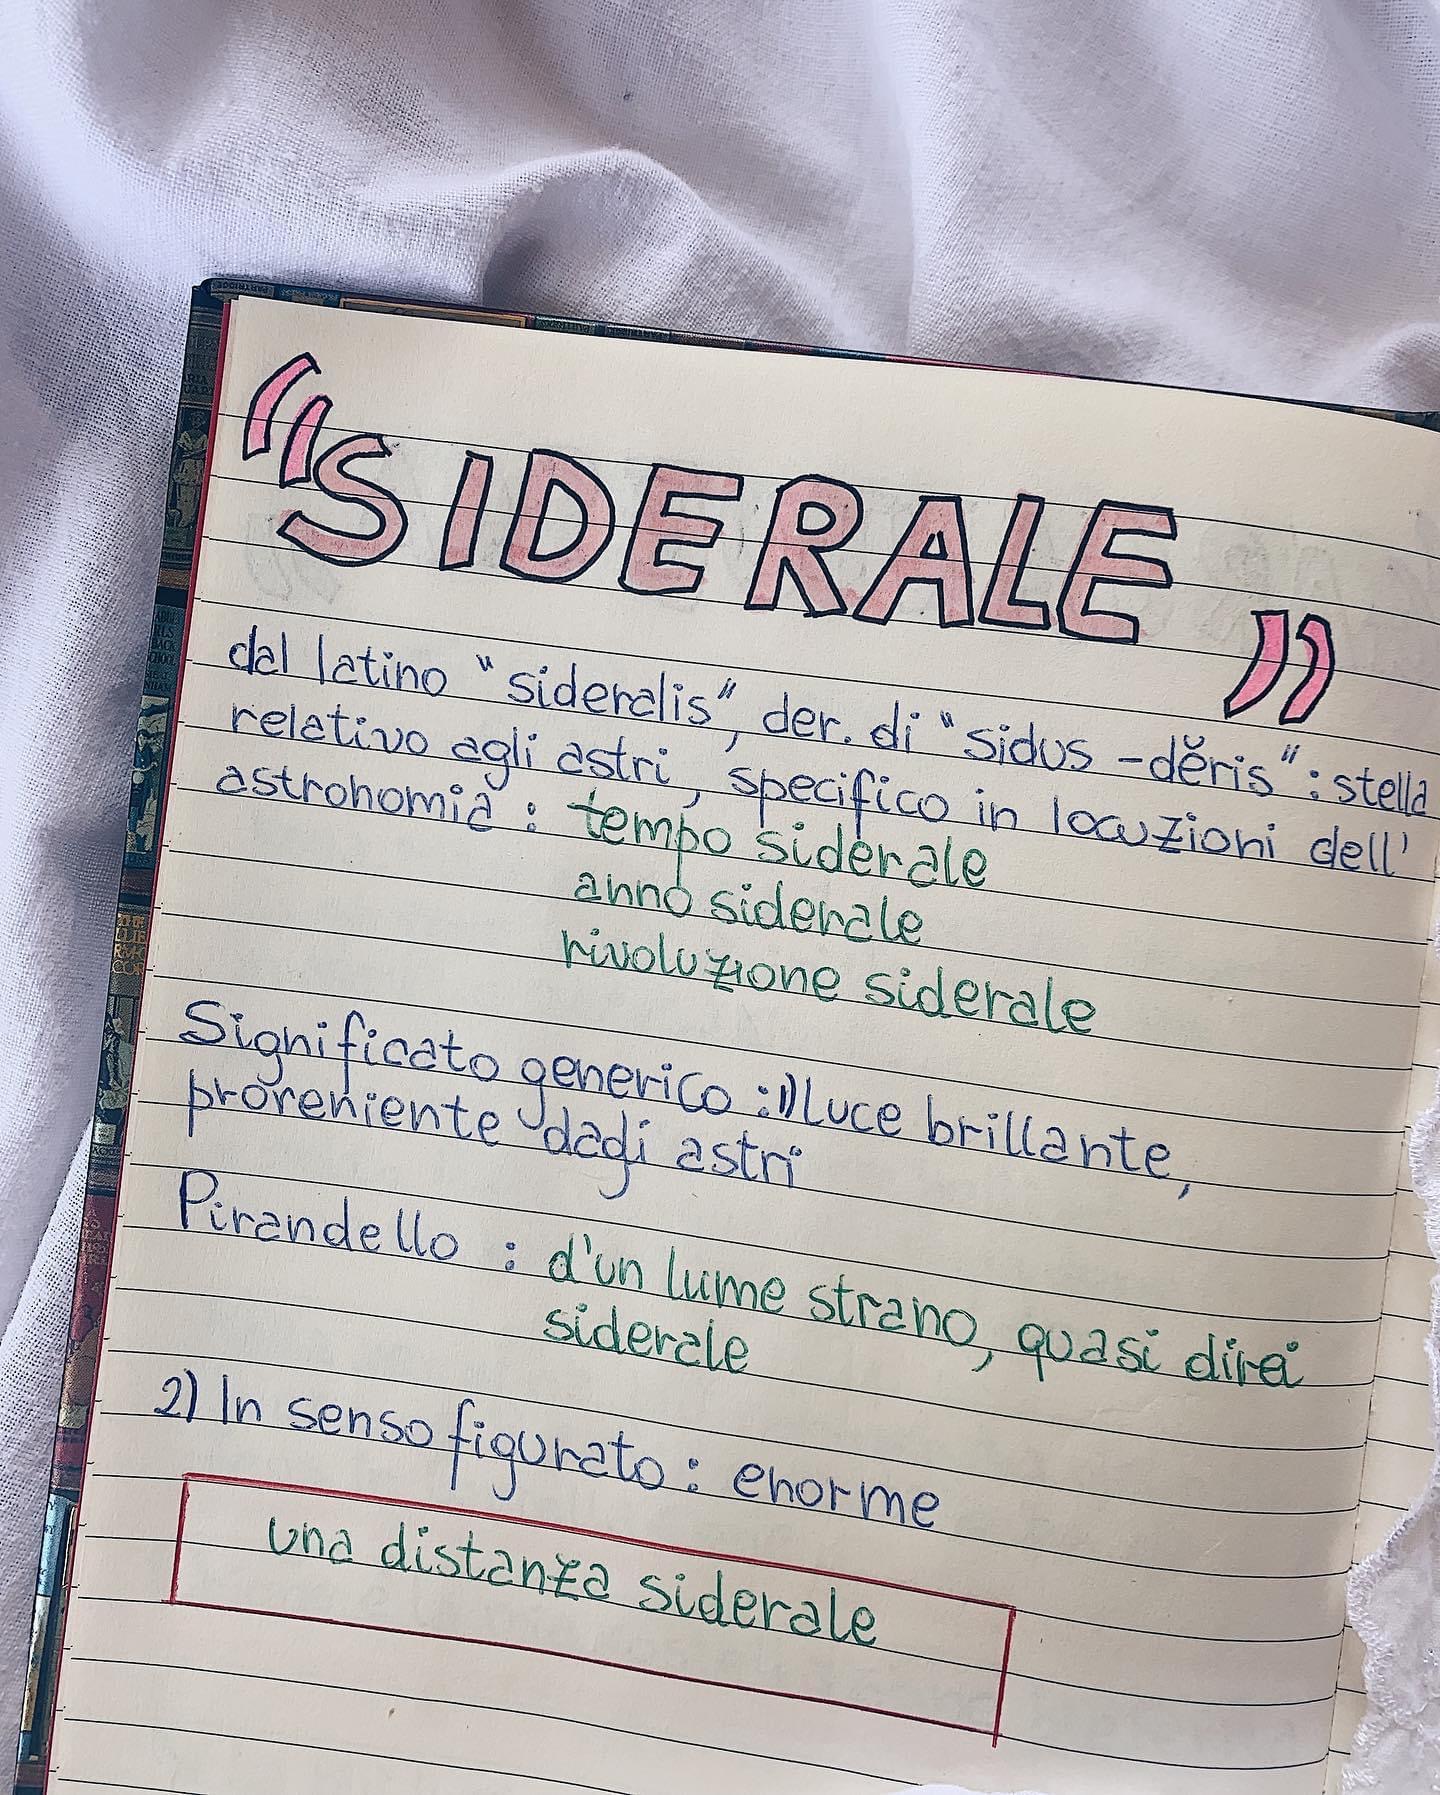 "SIDERALE"
dal latino "sideralis", der. di "sidus -dĕris": stella
relativo agli astri, specifico in locuzioni dell'
astronomia: tempo siderale
anno siderale
rivoluzione siderale
Significato generico: 1) Luce brillante,
proveniente dagli astri
Pirandello: d'un lume strano, quasi direi
siderale
2) In senso figurato: enorme
una distanza siderale